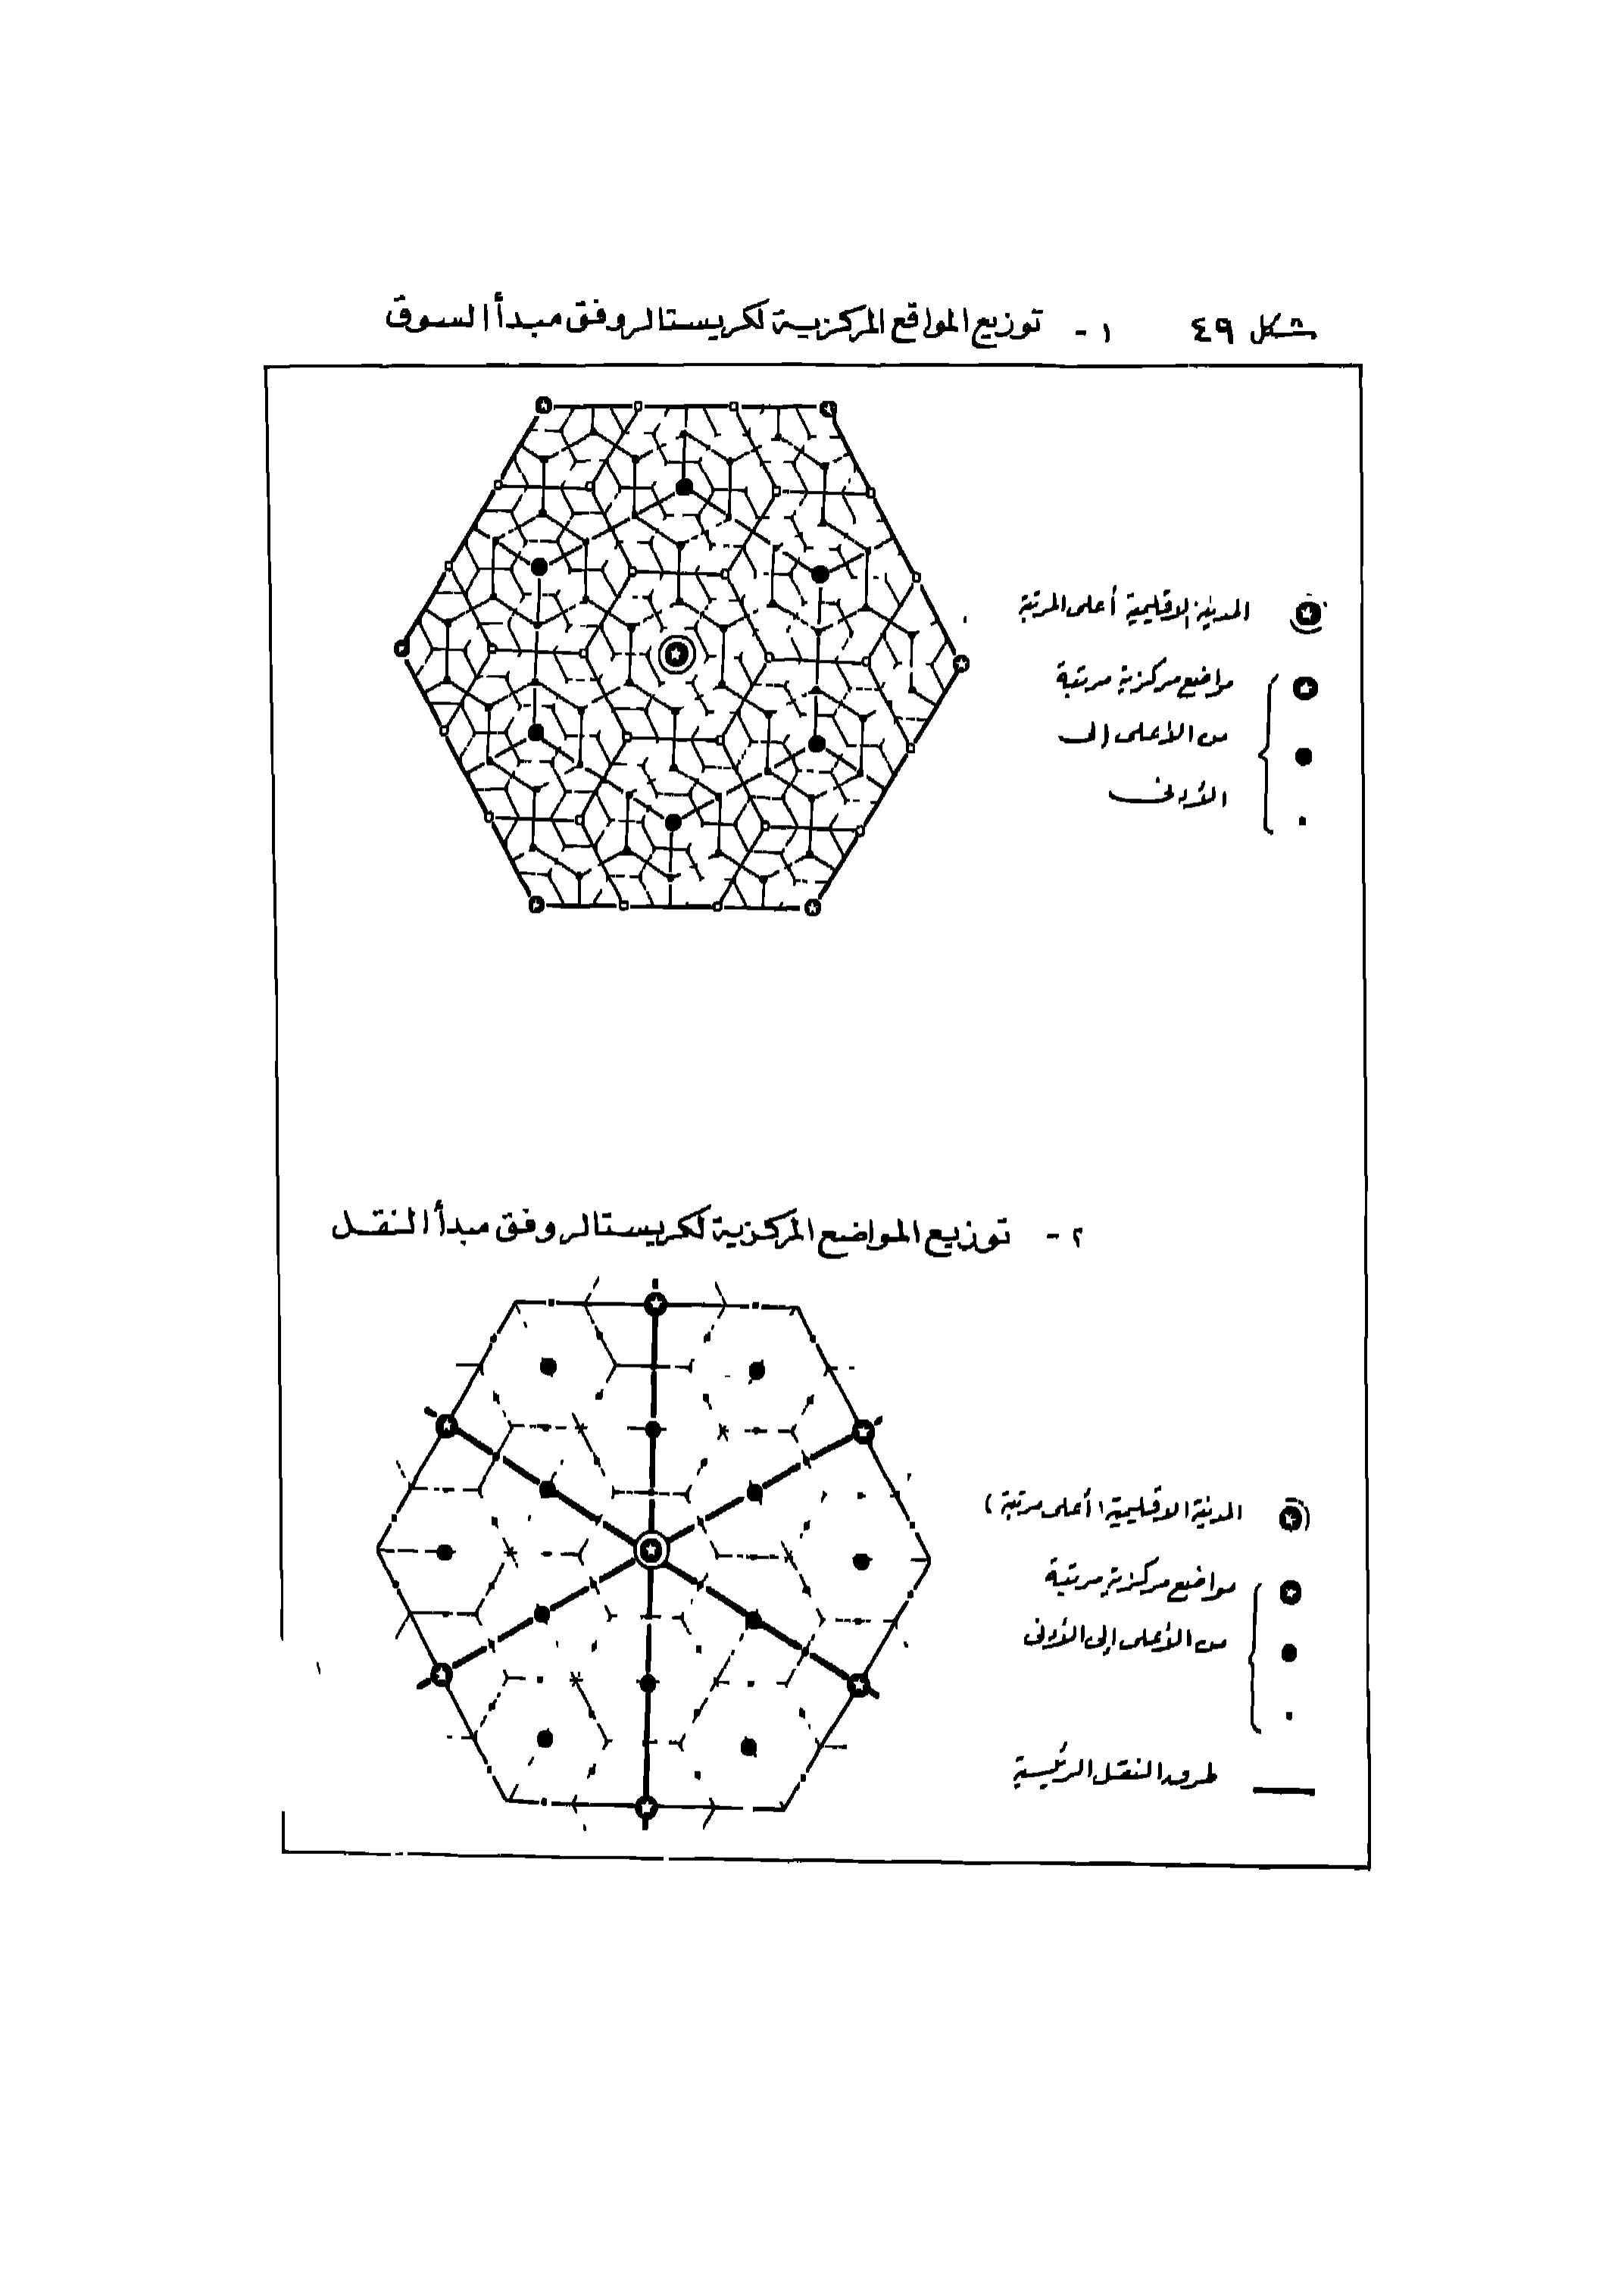 شكل ٤٩ ١ - توزيع المواقع المركزية لكريستالر وفق مبدأ السوق
المدينة الاقليمية أعلى المرتبة
مواضع مركزية مرتبة
من الأعلى إلى
الأدنى
٢ - توزيع المواضع المركزية لكريستالر وفق مبدأ النقل
المدينة الاقليمية (أعلى مرتبة)
مواضع مركزية مرتبة
من الأعلى إلى الأدنى
طرق النقل الرئيسية